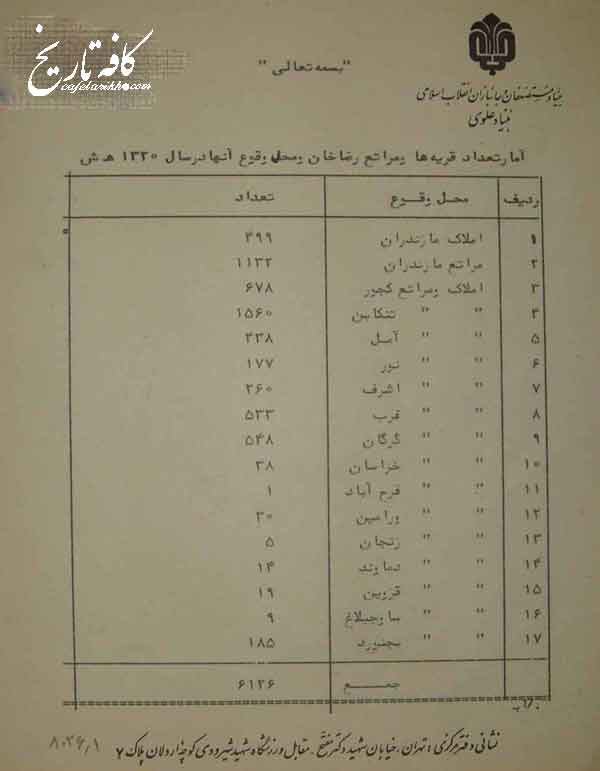 کافه تاریخ
cafetarikh.com
"بسمه تعالی"
بنیاد مستضعفان و جانبازان انقلاب اسلامی
بنیاد علوی
آمار تعداد قریه ها ومراتع رضاخان ومحل وقوع آنها در سال ۱۳۲۰ ه ش
ردیف محل وقوع تعداد
۱ املاک مازندران ۴۹۹
۲ مراتع مازندران ۱۱۳۲
۳ املاک ومراتع کجور ۶۷۸
۴ " " تنکابن ۱۵۶۰
۵ " " آمل ۴۳۸
۶ " " نور ۱۷۷
۷ " " اشرف ۲۶۰
۸ " " غرب ۵۳۳
۹ " " گرگان ۵۴۸
۱۰ " " خراسان ۳۸
۱۱ " " فرح آباد ۱
۱۲ " " ورامین ۳۰
۱۳ " " زنجان ۵
۱۴ " " دماوند ۱۴
۱۵ " " قزوین ۱۹
۱۶ " " ساوجبلاغ ۹
۱۷ " " بجنورد ۱۸۵
جمع ۶۱۲۶
نشانی دفتر مرکزی : تهران ، خیابان شهید دکتر مفتح ، مقابل ورزشگاه شهید شیرودی کوچه اردلان پلاک ۷
۸۰۲۶/۱